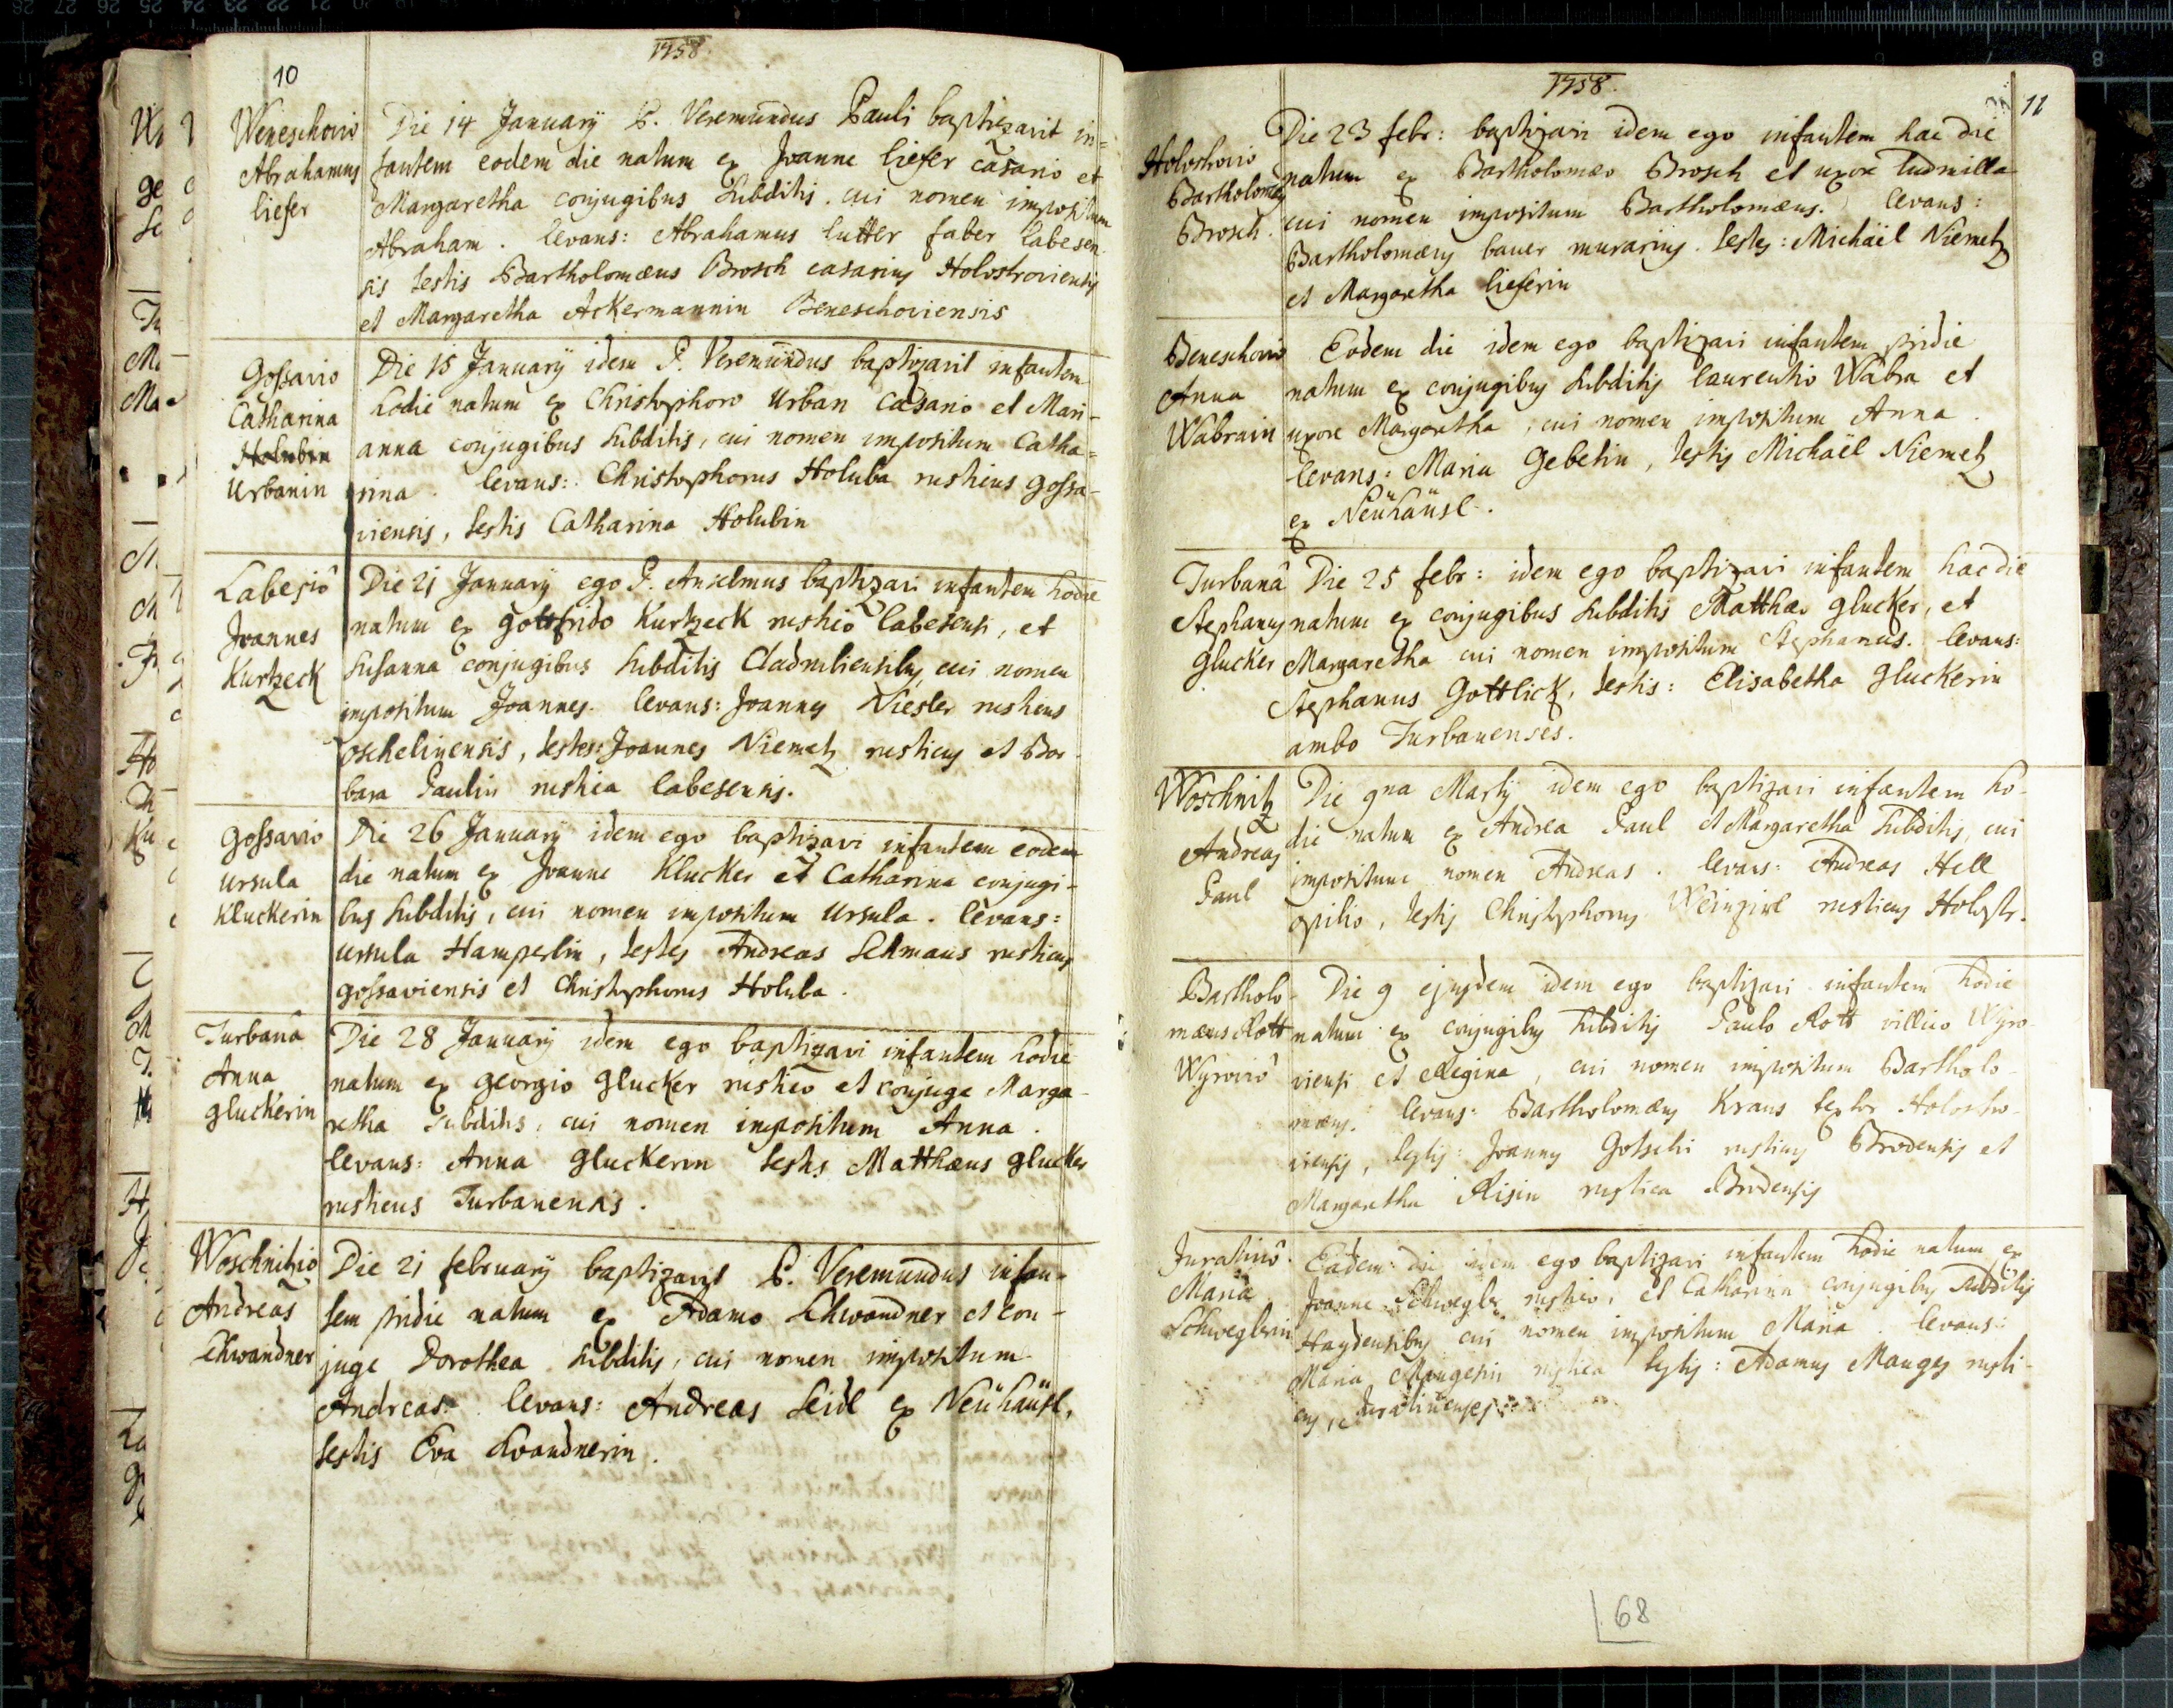 10
1758.
Weneschovio
Abrahamus
liefer
Die 14 Januarÿ P. Veremundus Pauli baptizavit in=
fantem eodem die natum ex Joanne liefer casario et
Margaretha conjugibus subditis. cui nomen impositum
Abraham. levans: Abrahamus lutter faber labesen
sis testis Bartholomæus Brosch casarius Holostroviensis
et Margaretha Ackermannin Beneschoviensis
Gossavio
Catharina
Holubin
Urbanin
Die 15 Januarÿ idem P. Veremundus baptizavit infantem
hodie natum ex Christophoro Urban casario et Mari-
anna conjugibus subditis, cui nomen impositum Catha=
rina. levans: Christophorus Holuba rusticus gossa-
viensis, testis Catharina Holubin
Labesiô
Joannes
Kurtzeck
Die 21 Januarÿ ego P. Anselmus baptizavi infantem hodie
natum ex gottfrido Kurtzeck rustico labesensi, et
Susanna conjugibus subditis Cladrubiensibus, cui nomen
impositum Joannes. levans: Joannes Niesler rusticus
oschelinensis, testes: Joannes Niemetz rusticus et Bar-
bara Paulin rustica labesensis.
Gossavio
Ursula
Kluckerin
Die 26 Januarÿ idem ego baptizavi infantem eodem
die natum ex Joanne Klucker et Catharina conjugi-
bus subditis, cui nomen impositum Ursula. levans:
Ursula Hamperlin, testes Andreas Lehmaus rusticus
gossaviensis et Christophorus Holuba.
Turbanâ
Anna
gluckerin
Die 28 Januarÿ idem ego baptizavi infantem hodie
natum ex georgio glucker rustico et conjuge Marga-
retha subditis, cui nomen impositum Anna.
levans: Anna gluckerin testis Matthæus glucker
rusticus Turbanensis.
Woschnitzio
Andreas
Schwandner
Die 21 februarÿ baptizavit P. Veremundus infan-
tem pridie natum ex Adamo Schwandner et con-
juge Dorothea subditis, cui nomen impositum
Andreas. levans: Andreas Seidl ex Neühäusl,
testis Eva Svandnerin.
1758.
11
Holostrovio
Bartholomæus
Brosch.
Die 23 febr: baptizavi idem ego infantem hac die
natum ex Bartholomæo Brosch et uxore Ludmilla
cui nomen impositum Bartholomæus. levans:
Bartholomæus bauer murarius. testes: Michaël Niemetz
et Margaretha lieferin
Beneschovio
Anna
Wabrain
Eodem die idem ego baptizavi infantem pridie
natum ex conjugibus subditis laurentio Wabra et
uxore Margaretha, cui nomen impositum Anna.
levans: Maria Gebetin, testis Michaël Niemetz
ex Neühäusl.
Turbanâ
Stephanus
glucker
Die 25 febr: idem ego baptizavi infantem hac die
natum ex conjugibus subditis Matthæo glucker, et
Margaretha cui nomen impositum Stephanus. levans:
Stephanus Gottlick, testis: Elisabetha gluckerin
ambo Turbanenses.
Woschnitz
Andreas
Paul
Die 9na Martÿ idem ego baptizavi infantem ho-
die natum ex Andrea Paul et Margaretha subditis, cui
impositum nomen Andreas. levans: Andreas Hell
opilio, testis Christophorus Weinzirl rusticus Holostr.
Bartholo-
mæus Rott
Wyroviô
Die 9 ejusdem idem ego baptizavi infantem hodie
natum ex conjugibus subditis Paulo Rott villico Wyro
viensi et Regina, cui nomen impositum Bartholo-
mæus. levans: Bartholomæus Kraus textor Holostro-
viensis, testis: Joannes Gotschi rusticus Brodensis et
Margaretha Risin rustica Brodensis
Juratinô
Maria
Schweglerin
Eadem die idem ego baptizavi infantem hodie natum ex
Joanne Schwegler rustico, et Catharina conjugibus subditis
Haydensibus cui nomen impositum Maria. levans:
Maria Maugesin rustica testis: Adamus Mauges rusti-
cus, Juratinenses.
68